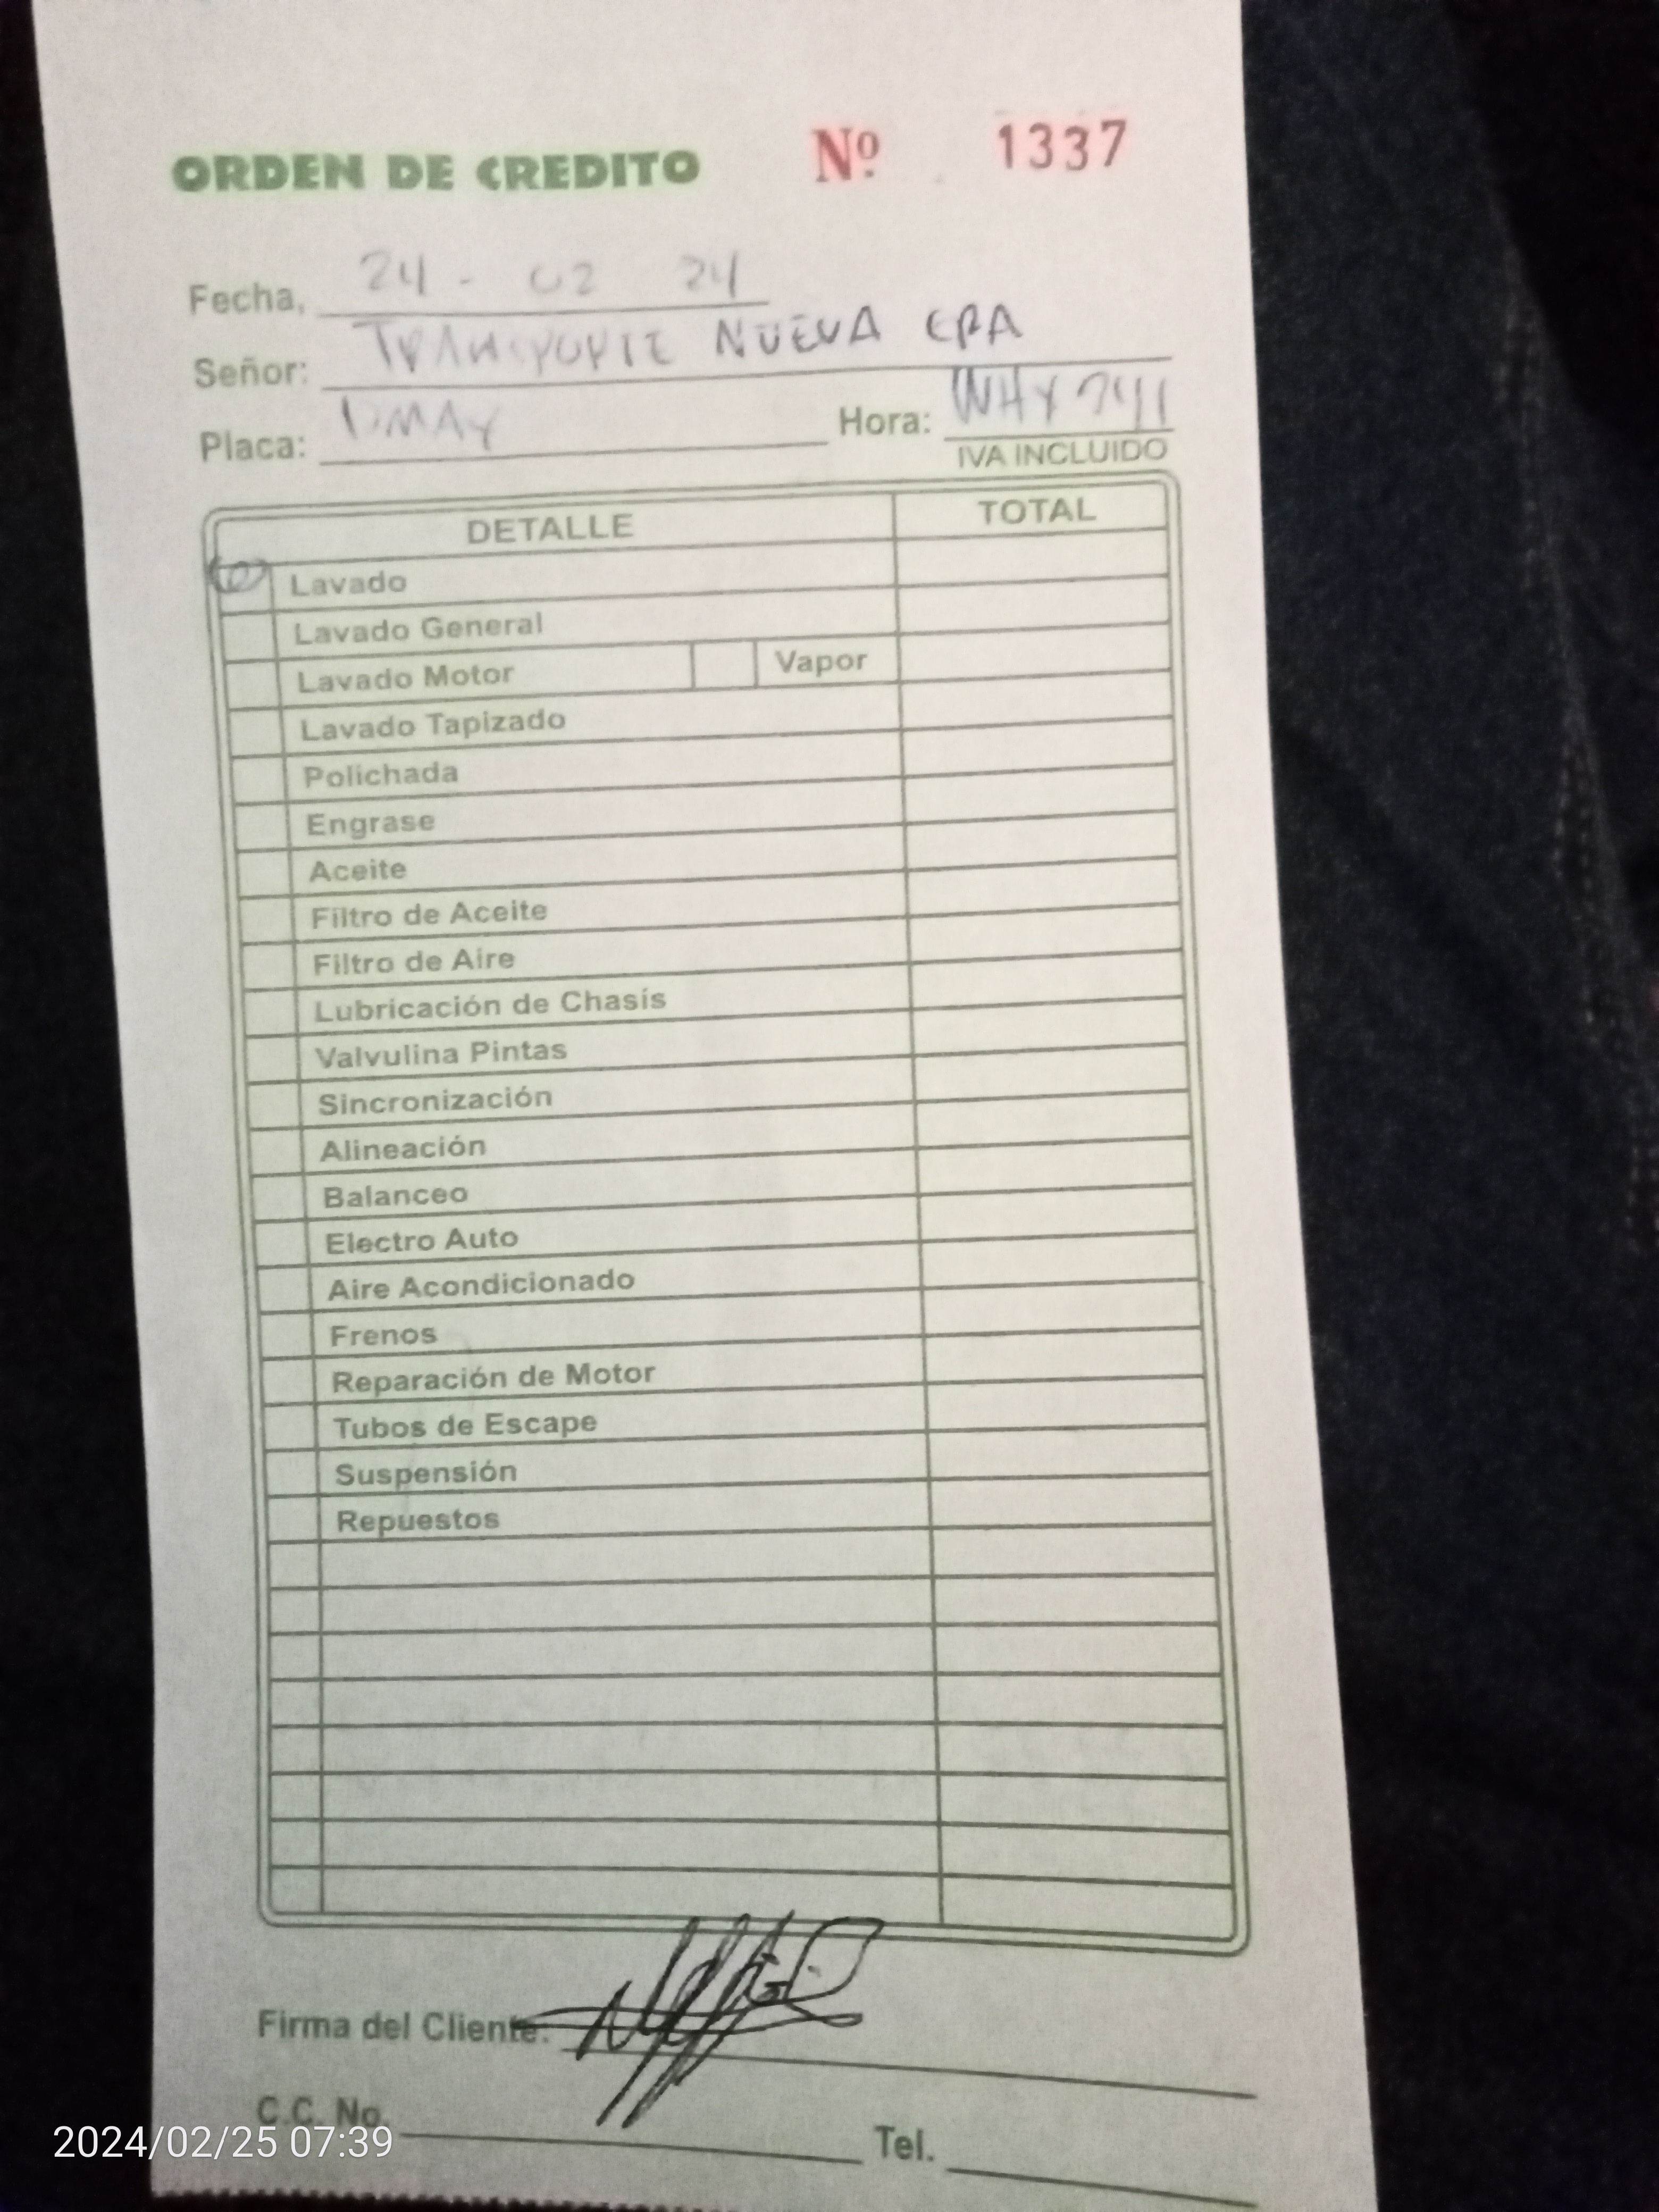 ORDEN DE CREDITO Nº 1337
Fecha, 24 - 02 24
Señor: TRANSPORTE NUEVA ERA
Placa: DMAX Hora: WHY 741
IVA INCLUIDO
DETALLE TOTAL
Lavado
Lavado General
Lavado Motor Vapor
Lavado Tapizado
Polichada
Engrase
Aceite
Filtro de Aceite
Filtro de Aire
Lubricación de Chasís
Valvulina Pintas
Sincronización
Alineación
Balanceo
Electro Auto
Aire Acondicionado
Frenos
Reparación de Motor
Tubos de Escape
Suspensión
Repuestos
Firma del Cliente:
C.C. No. Tel.
2024/02/25 07:39